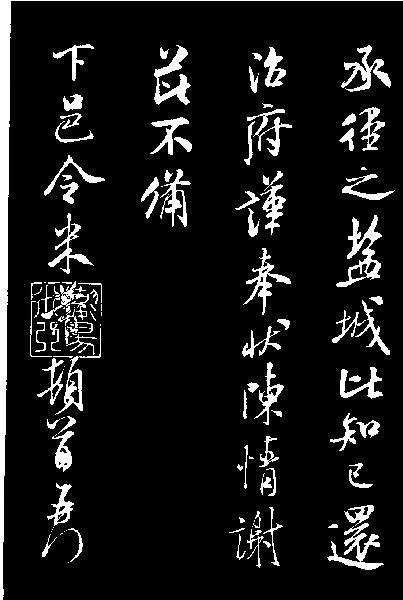 承徑之鹽城比知已還
治府謹奉狀陳情謝
芘不備
下邑令米頓首再拜